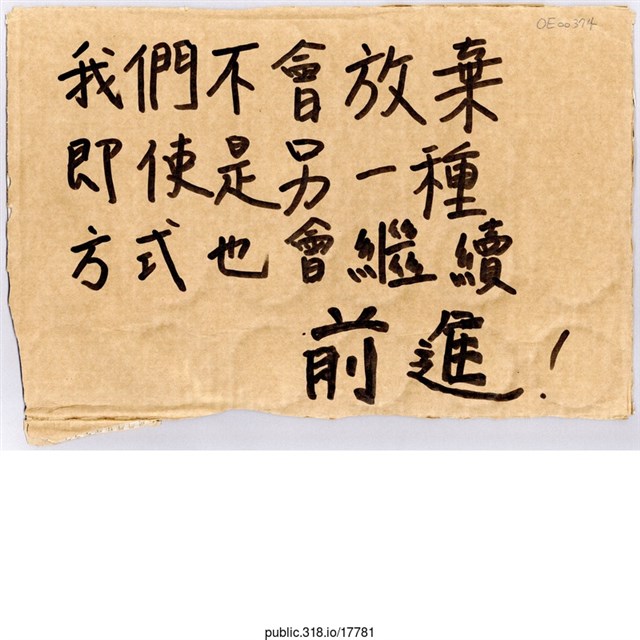 OE00374
我們不會放棄
即使是另一種
方式也會繼續
前進！
public.318.io/17781